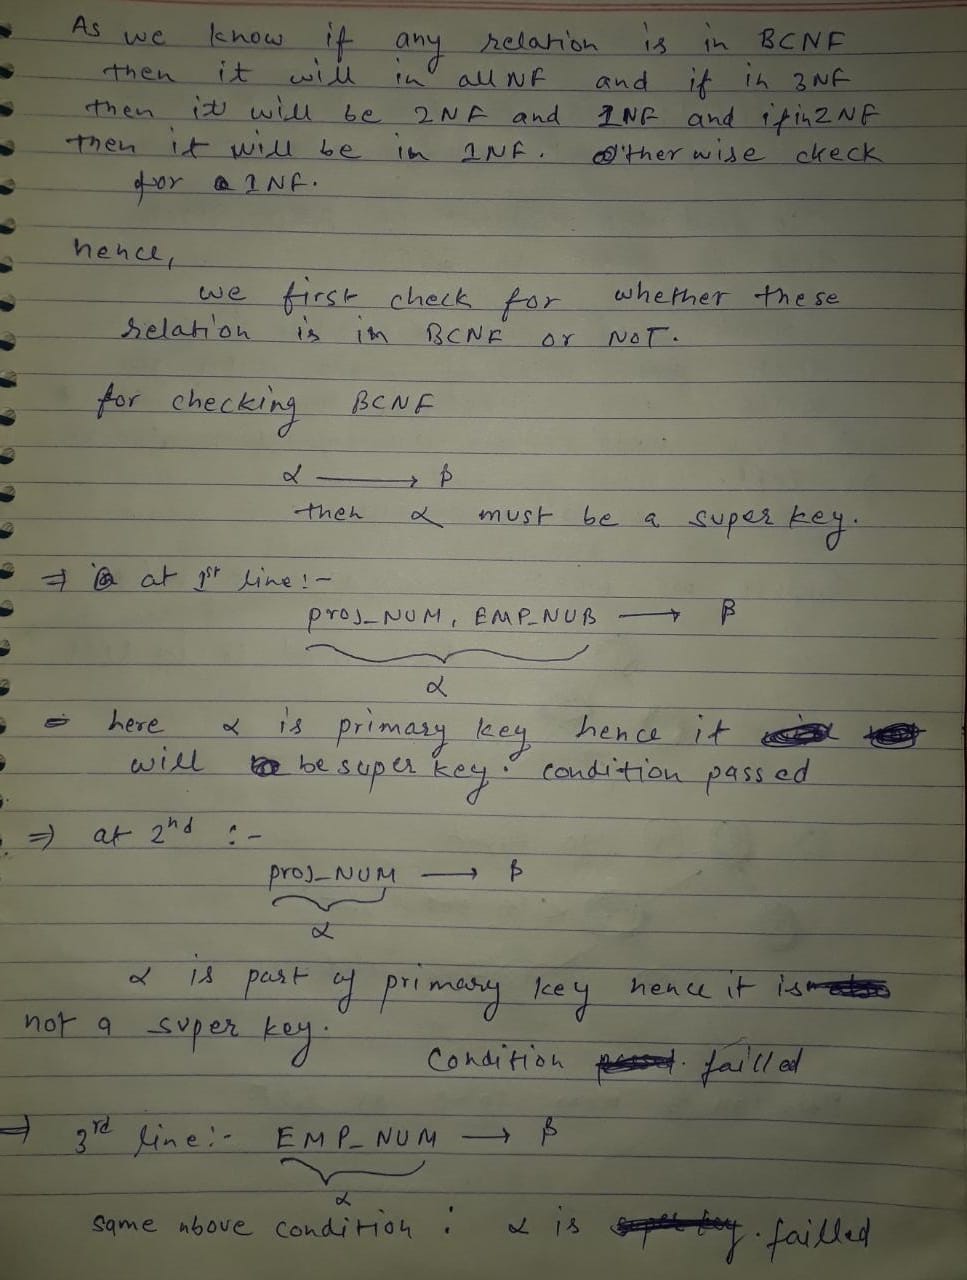 As we know if any relation is in BCNF
then it will in all NF and if in 3NF
then it will be 2NF and 1NF and if in 2NF
then it will be in 1NF. Otherwise check
for 1NF.
hence,
we first check for whether these
relation is in BCNF or NOT.
for checking BCNF
α ⟶ β
then α must be a super key.
⇒ at 1st line:-
proj_NUM, EMP_NUB ⟶ β
α
= here α is primary key hence it
will be super key. condition passed
⇒ at 2nd :-
proj_NUM ⟶ β
α
α is part of primary key hence it is
not a super key.
Condition failled
⇒ 3rd line:- EMP_NUM ⟶ β
α
same above condition : α is . failled